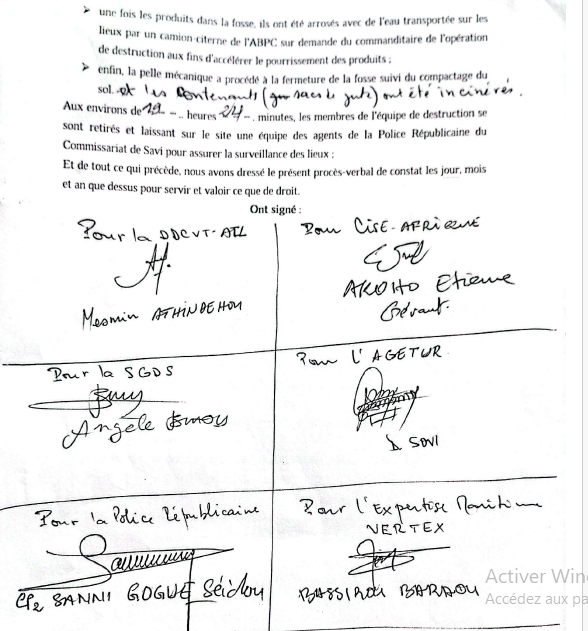 ➤ une fois les produits dans la fosse, ils ont été arrosés avec de l'eau transportée sur les
lieux par un camion-citerne de l'ABPC sur demande du commanditaire de l'opération
de destruction aux fins d'accélérer le pourrissement des produits ;
➤ enfin, la pelle mécanique a procédé à la fermeture de la fosse suivi du compactage du
sol. et les contenants (gros sacs de jute) ont été incinérés.
Aux environs de 19 - .. heures 24 - . minutes, les membres de l'équipe de destruction se
sont retirés et laissant sur le site une équipe des agents de la Police Républicaine du
Commissariat de Savi pour assurer la surveillance des lieux ;
Et de tout ce qui précède, nous avons dressé le présent procès-verbal de constat les jour, mois
et an que dessus pour servir et valoir ce que de droit.
Ont signé :
Pour la DDCVT-ATL
Mesmin ATHINDEHOU
Pour CISE-AFRIQUE
AKOHO Etienne
Gérant.
Pour la SGDS
Angèle
Pour l'AGETUR
SOVI
Pour la Police Républicaine
CP2 SANNI GOGUE Séidou
Pour l'Expertise Maritime
VERTEX
BASSIROU BARAOU
Activer Win
Accédez aux pa